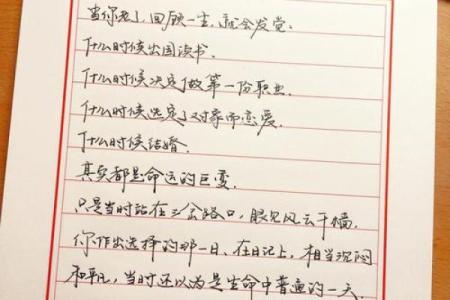 当你老了,回顾一生,就会发觉:
什么时候出国读书.
什么时候决定做第一份职业.
什么时候选定了对象而恋爱.
什么时候结婚.
其实都是命运的巨变.
只是当时站在三岔路口,眼见风云千樯.
你作出选择的那一日,在日记上,相当沉闷
和平凡,当时还以为是生命中普通的一天.